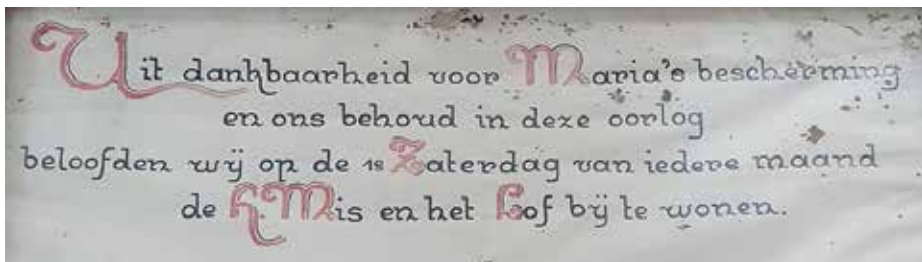 Uit dankbaarheid voor Maria's bescherming
en ons behoud in deze oorlog
beloofden wij op de 1e Zaterdag van iedere maand
de H. Mis en het Lof bij te wonen.